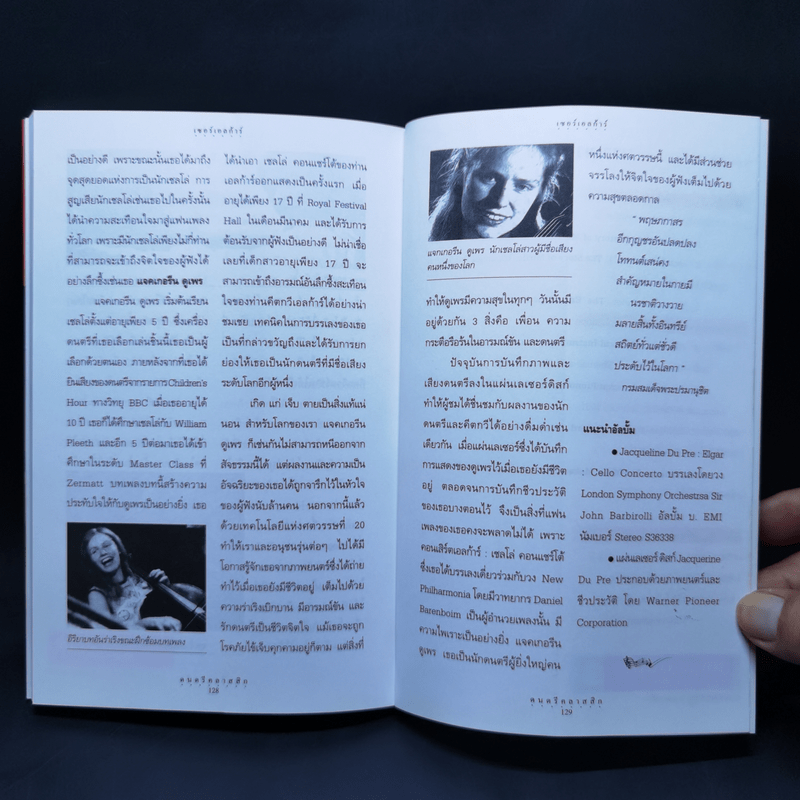 เซอร์เอลก้าร์
เป็นอย่างดี เพราะขณะนั้นเธอได้มาถึง
จุดสุดยอดแห่งการเป็นนักเชลโล่ การ
สูญเสียนักเชลโล่เช่นเธอไปในครั้งนั้น
ได้นำความสะเทือนใจมาสู่แฟนเพลง
ทั่วโลก เพราะมีนักเชลโล่เพียงไม่กี่ท่าน
ที่สามารถจะเข้าถึงจิตใจของผู้ฟังได้
อย่างลึกซึ้งเช่นเธอ แจคเกอรีน ดูเพร
แจคเกอรีน ดูเพร เริ่มต้นเรียน
เชลโล่ตั้งแต่อายุเพียง 5 ปี ซึ่งเครื่อง
ดนตรีที่เธอเลือกเล่นชิ้นนี้เธอเป็นผู้
เลือกด้วยตนเอง ภายหลังจากที่เธอได้
ยินเสียงของดนตรีจากรายการ Children's
Hour ทางวิทยุ BBC เมื่อเธออายุได้
10 ปี เธอก็ได้ศึกษาเชลโล่กับ William
Pleeth และอีก 5 ปีต่อมาเธอได้เข้า
ศึกษาในระดับ Master Class ที่
Zermatt บทเพลงบทนี้สร้างความ
ประทับใจให้กับดูเพรเป็นอย่างยิ่ง เธอ
อิริยาบทอันร่าเริงขณะฝึกซ้อมบทเพลง
ได้นำเอา เชลโล่ คอนแชร์โต้ของท่าน
เอลก้าร์ออกแสดงเป็นครั้งแรก เมื่อ
อายุได้เพียง 17 ปี ที่ Royal Festival
Hall ในเดือนมีนาคม และได้รับการ
ต้อนรับจากผู้ฟังเป็นอย่างดี ไม่น่าเชื่อ
เลยที่เด็กสาวอายุเพียง 17 ปี จะ
สามารถเข้าถึงอารมณ์อันลึกซึ้งสะเทือน
ใจของท่านคีตกวีเอลก้าร์ได้อย่างน่า
ชมเชย เทคนิคในการบรรเลงของเธอ
เป็นที่กล่าวขวัญถึงและได้รับการยก
ย่องให้เธอเป็นนักดนตรีที่มีชื่อเสียง
ระดับโลกอีกผู้หนึ่ง
เกิด แก่ เจ็บ ตายเป็นสิ่งแท้แน่
นอน สำหรับโลกของเรา แจคเกอรีน
ดูเพร ก็เช่นกันไม่สามารถหนีออกจาก
สัจธรรมนี้ได้ แต่ผลงานและความเป็น
อัจฉริยะของเธอได้ถูกจารึกไว้ในหัวใจ
ของผู้ฟังนับล้านคน นอกจากนี้แล้ว
ด้วยเทคโนโลยีแห่งศตวรรษที่ 20
ทำให้เราและอนุชนรุ่นต่อๆ ไปได้มี
โอกาสรู้จักเธอจากภาพยนตร์ซึ่งได้ถ่าย
ทำไว้เมื่อเธอยังมีชีวิตอยู่ เต็มไปด้วย
ความร่าเริงเบิกบาน มีอารมณ์ขัน และ
รักดนตรีเป็นชีวิตจิตใจ แม้เธอจะถูก
โรคภัยไข้เจ็บคุกคามอยู่ก็ตาม แต่สิ่งที่
ดนตรีคลาสสิก
128
เซอร์เอลก้าร์
แจกเกอรีน ดูเพร นักเชลโล่สาวผู้มีชื่อเสียง
คนหนึ่งของโลก
ทำให้ดูเพรมีความสุขในทุกๆ วันนั้นมี
อยู่ด้วยกัน 3 สิ่งคือ เพื่อน ความ
กระตือรือร้นในอารมณ์ขัน และดนตรี
ปัจจุบันการบันทึกภาพและ
เสียงดนตรีลงในแผ่นเลเซอร์ดิสก์
ทำให้ผู้ชมได้ชื่นชมกับผลงานของนัก
ดนตรีและคีตกวีได้อย่างดื่มด่ำเช่น
เดียวกัน เมื่อแผ่นเลเซอร์ซึ่งได้บันทึก
การแสดงของดูเพรไว้เมื่อเธอยังมีชีวิต
อยู่ ตลอดจนการบันทึกชีวประวัติ
ของเธอบางตอนไว้ จึงเป็นสิ่งที่แฟน
เพลงของเธอคงจะพลาดไม่ได้ เพราะ
คอนเสิร์ตเอลก้าร์ : เชลโล่ คอนแชร์โต้
ซึ่งเธอได้บรรเลงเดี่ยวร่วมกับวง New
Philharmonia โดยมีวาทยากร Daniel
Barenboim เป็นผู้อำนวยเพลงนั้น มี
ความไพเราะเป็นอย่างยิ่ง แจคเกอรีน
ดูเพร เธอเป็นนักดนตรีผู้ยิ่งใหญ่คน
หนึ่งแห่งศตวรรษนี้ และได้มีส่วนช่วย
จรรโลงให้จิตใจของผู้ฟังเต็มไปด้วย
ความสุขตลอดกาล
" พฤษภกาสร
อีกกุญชรอันปลดปลง
โททนต์เสน่งคง
สำคัญหมายในกายมี
นรชาติวางวาย
มลายสิ้นทั้งอินทรีย์
สถิตย์ทั่วแต่ชั่วดี
ประดับไว้ในโลกา "
กรมสมเด็จพระปรมานุชิต
แนะนำอัลบั้ม
● Jacqueline Du Pre : Elgar
: Cello Concerto บรรเลงโดยวง
London Symphony Orchestrsa Sir
John Barbirolli อัลบั้ม บ. EMI
นัมเบอร์ Stereo S36338
● แผ่นเลเซอร์ ดิสก์ Jacquerine
Du Pre ประกอบด้วยภาพยนตร์และ
ชีวประวัติ โดย Warner Pioneer
Corporation
ดนตรีคลาสสิก
129